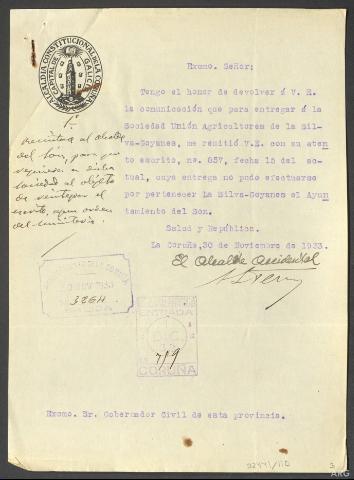 ALCALDIA CONSTITUCIONAL DE LA CORUÑA
CAPITAL DE GALICIA
Exomo. Señor;
Tengo el honor de devolver á V. E.
la comunicación que para entregar á la
Sociedad Unión Agricultores de la Sil-
va-Goyanes, me remitió V.E. con su aten
to escrito, nº. 657, fecha 15 del ac-
tual, cuya entrega no pudo efectuarse
por pertenecer La Silva-Goyanes al Ayun
tamiento del Son.
Salud y República.
La Coruña, 30 de Noviembre de 1933.
El Alcalde accidental
Remítase al alcalde
del Son, para que
requiera a dicha
sociedad al objeto
de
escrito, orden
del ministerio
NOV 1933
3264
ENTRADA
719
CORUÑA
Exomo. Sr. Gobernador Civil de esta provincia.
ARG